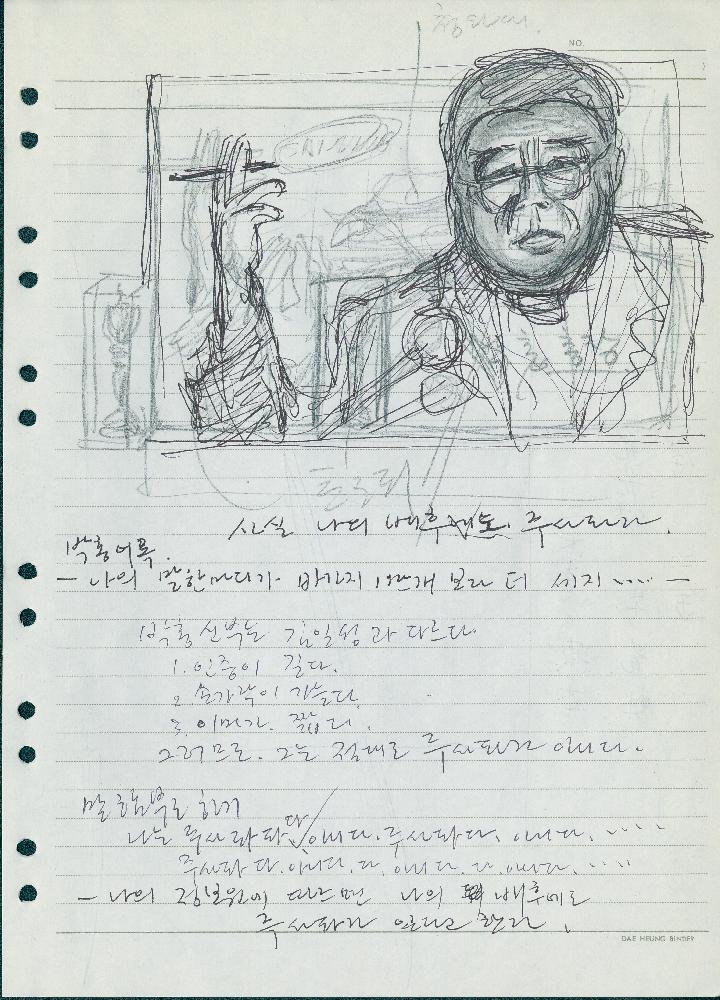 NO.
사실 나의 배후에도. 주사파라.
박홍어록.
- 나의 말한마디가 바가지 1만개 보다 더 세지 ..... -
박홍 신부는 김일성과 다르다.
1. 인중이 길다.
2. 손가락이 가늘다.
3. 이마가. 짧다.
그러므로. 그는 절대로 주사파가 아니다.
말 함부로 하기
나는 주사파다 아니다. 주사파다. 아니다. ....
주사파다. 아니다. 다. 아니다. 다. 아니다. .....
- 나의 정보원에 따르면 나의 배후에도
주사파가 있다고 한다.
DAE HEUNG BINDER